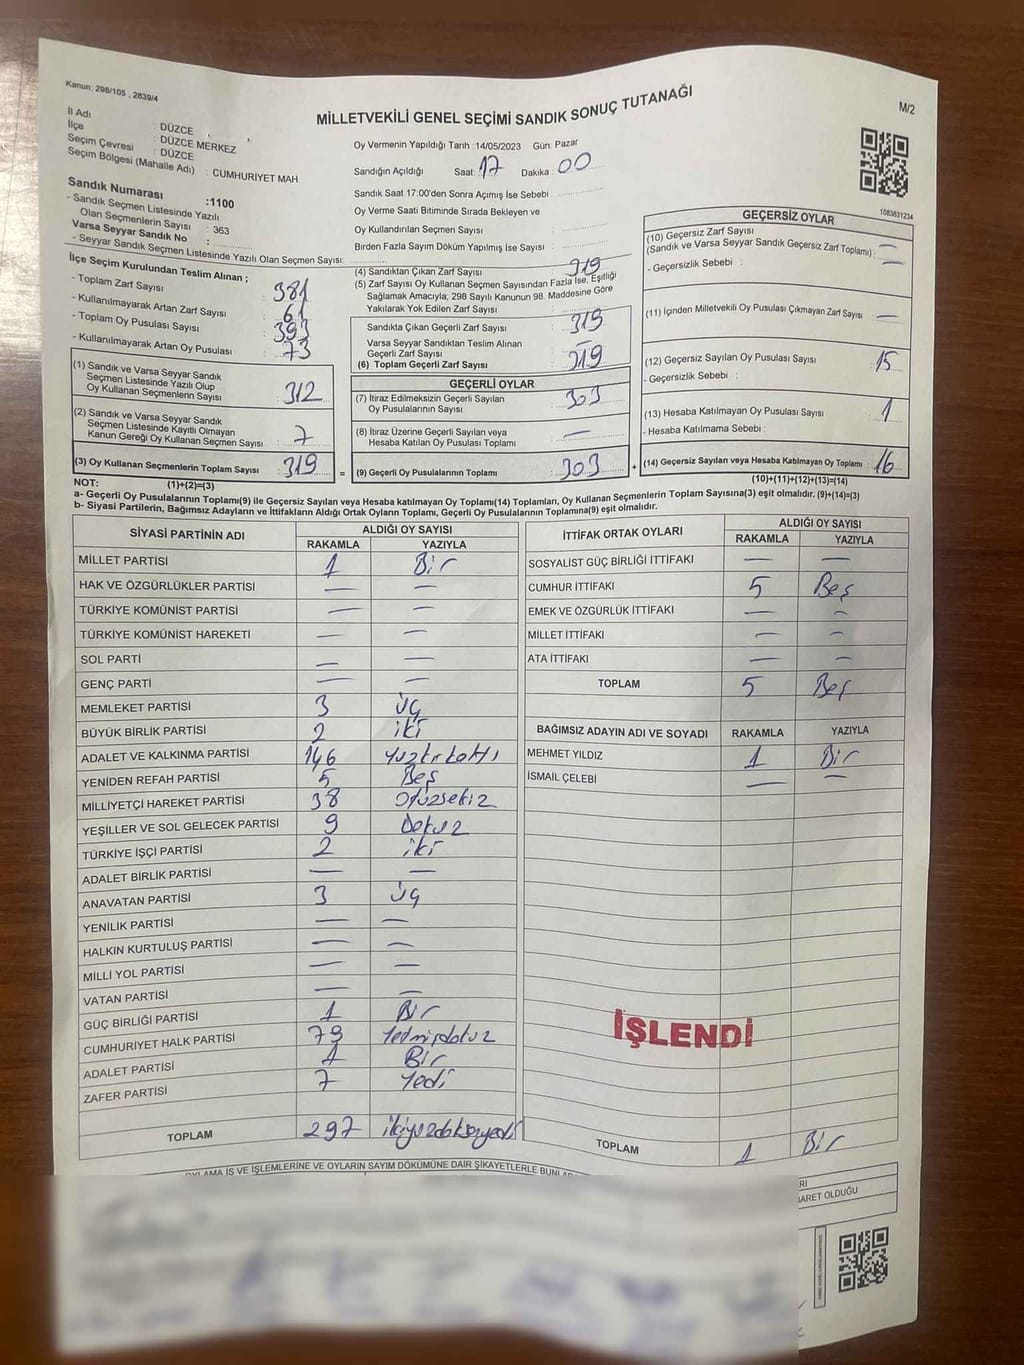 Kanun: 298/105 , 2839/4
MİLLETVEKİLİ GENEL SEÇİMİ SANDIK SONUÇ TUTANAĞI
M/2
İl Adı : DÜZCE
İlçe : DÜZCE MERKEZ
Seçim Çevresi : DÜZCE
Seçim Bölgesi (Mahalle Adı) : CUMHURİYET MAH
Sandık Numarası :1100
- Sandık Seçmen Listesinde Yazılı
Olan Seçmenlerin Sayısı : 363
Varsa Seyyar Sandık No :
- Seyyar Sandık Seçmen Listesinde Yazılı Olan Seçmen Sayısı:
Oy Vermenin Yapıldığı Tarih : 14/05/2023 Gün: Pazar
Sandığın Açıldığı Saat: 17 Dakika : 00
Sandık Saat 17:00'den Sonra Açımış İse Sebebi :
Oy Verme Saati Bitiminde Sırada Bekleyen ve
Oy Kullandırılan Seçmen Sayısı :
Birden Fazla Sayım Döküm Yapılmış İse Sayısı :
1083631234
İlçe Seçim Kurulundan Teslim Alınan ;
- Toplam Zarf Sayısı : 381
- Kullanılmayarak Artan Zarf Sayısı : 61
- Toplam Oy Pusulası Sayısı : 393
- Kullanılmayarak Artan Oy Pusulası : 73
(1) Sandık ve Varsa Seyyar Sandık
Seçmen Listesinde Yazılı Olup
Oy Kullanan Seçmenlerin Sayısı : 312
(2) Sandık ve Varsa Seyyar Sandık
Seçmen Listesinde Kayıtlı Olmayan
Kanun Gereği Oy Kullanan Seçmen Sayısı : 7
(3) Oy Kullanan Seçmenlerin Toplam Sayısı : 319
(4) Sandıktan Çıkan Zarf Sayısı : 319
(5) Zarf Sayısı Oy Kullanan Seçmen Sayısından Fazla İse, Eşitliği
Sağlamak Amacıyla; 298 Sayılı Kanunun 98. Maddesine Göre
Yakılarak Yok Edilen Zarf Sayısı :
Sandıkta Çıkan Geçerli Zarf Sayısı : 319
Varsa Seyyar Sandıktan Teslim Alınan
Geçerli Zarf Sayısı : —
(6) Toplam Geçerli Zarf Sayısı : 319
GEÇERLİ OYLAR
(7) İtiraz Edilmeksizin Geçerli Sayılan
Oy Pusulalarının Sayısı : 303
(8) İtiraz Üzerine Geçerli Sayılan veya
Hesaba Katılan Oy Pusulası Toplamı : —
= (9) Geçerli Oy Pusulalarının Toplamı : 303
GEÇERSİZ OYLAR
(10) Geçersiz Zarf Sayısı
(Sandık ve Varsa Seyyar Sandık Geçersiz Zarf Toplamı) : —
- Geçersizlik Sebebi : —
(11) İçinden Milletvekili Oy Pusulası Çıkmayan Zarf Sayısı : —
(12) Geçersiz Sayılan Oy Pusulası Sayısı : 15
- Geçersizlik Sebebi :
(13) Hesaba Katılmayan Oy Pusulası Sayısı : 1
- Hesaba Katılmama Sebebi :
+ (14) Geçersiz Sayılan veya Hesaba Katılmayan Oy Toplamı : 16
NOT: (1)+(2)=(3)
(10)+(11)+(12)+(13)=(14)
a- Geçerli Oy Pusulalarının Toplamı(9) ile Geçersiz Sayılan veya Hesaba katılmayan Oy Toplamı(14) Toplamları, Oy Kullanan Seçmenlerin Toplam Sayısına(3) eşit olmalıdır. (9)+(14)=(3)
b- Siyasi Partilerin, Bağımsız Adayların ve İttifakların Aldığı Ortak Oyların Toplamı, Geçerli Oy Pusulalarının Toplamına(9) eşit olmalıdır.
SİYASİ PARTİNİN ADI ALDIĞI OY SAYISI
RAKAMLA YAZIYLA
MİLLET PARTİSİ 1 Bir
HAK VE ÖZGÜRLÜKLER PARTİSİ — —
TÜRKİYE KOMÜNİST PARTİSİ — —
TÜRKİYE KOMÜNİST HAREKETİ — —
SOL PARTİ — —
GENÇ PARTİ — —
MEMLEKET PARTİSİ 3 üç
BÜYÜK BİRLİK PARTİSİ 2 iki
ADALET VE KALKINMA PARTİSİ 146 Yüzkırkaltı
YENİDEN REFAH PARTİSİ 5 Beş
MİLLİYETÇİ HAREKET PARTİSİ 38 Otuzsekiz
YEŞİLLER VE SOL GELECEK PARTİSİ 9 Dokuz
TÜRKİYE İŞÇİ PARTİSİ 2 iki
ADALET BİRLİK PARTİSİ — —
ANAVATAN PARTİSİ 3 üç
YENİLİK PARTİSİ — —
HALKIN KURTULUŞ PARTİSİ — —
MİLLİ YOL PARTİSİ — —
VATAN PARTİSİ — —
GÜÇ BİRLİĞİ PARTİSİ 1 Bir
CUMHURİYET HALK PARTİSİ 79 Yetmişdokuz
ADALET PARTİSİ 1 Bir
ZAFER PARTİSİ 7 Yedi
TOPLAM 297 ikiyüzdoksanyedi
İTTİFAK ORTAK OYLARI ALDIĞI OY SAYISI
RAKAMLA YAZIYLA
SOSYALİST GÜÇ BİRLİĞİ İTTİFAKI — —
CUMHUR İTTİFAKI 5 Beş
EMEK VE ÖZGÜRLÜK İTTİFAKI — —
MİLLET İTTİFAKI — —
ATA İTTİFAKI — —
TOPLAM 5 Beş
BAĞIMSIZ ADAYIN ADI VE SOYADI RAKAMLA YAZIYLA
MEHMET YILDIZ 1 Bir
İSMAİL ÇELEBİ — —
İŞLENDİ
TOPLAM 1 Bir
OYLAMA İŞ VE İŞLEMLERİNE VE OYLARIN SAYIM DÖKÜMÜNE DAİR ŞİKAYETLERLE